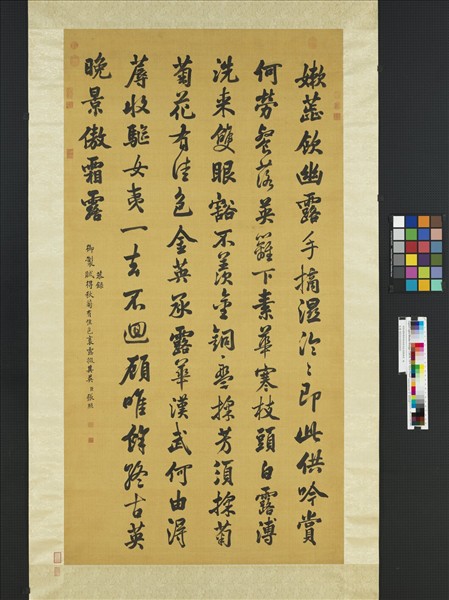 嫩蕊飲幽露手摘濕泠〻即此供吟賞
何勞餐落英籬下素華寒枝頭白露漙
洗来雙眼豁不羨金銅盤採芳須採菊
菊花有佳色金英承露華漢武何由得
蓐收驅女夷一去不迴顧唯餘終古英
晚景傲霜露
恭錄
御製賦得秋菊有佳色裛露掇其英 臣張照